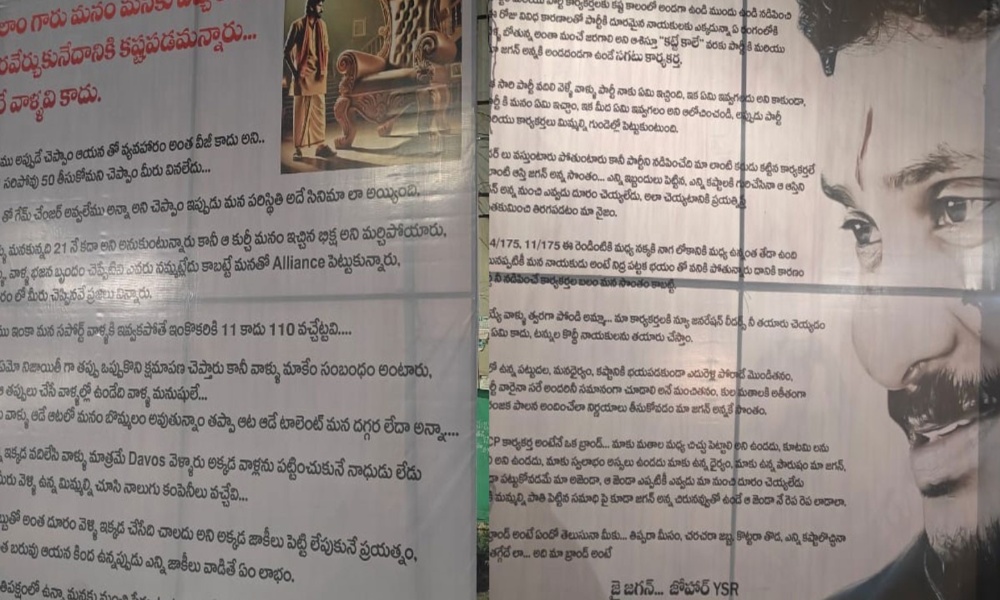 లాం గారు మనం మనకు
రవేర్చుకునేదానికి కష్టపడమన్నారు...
వాళ్ళవి కాదు.
ము అప్పుడే చెప్పాం ఆయన తో వ్యవహారం అంత వీజీ కాదు అని..
సరిపోవు 50 తీసుకోమని చెప్పాం మీరు వినలేదు...
తో గేమ్ చేంజర్ అవ్వలేము అన్నా అని చెప్పాం ఇప్పుడు మన పరిస్థితి అదే సినిమా లా అయ్యింది,
మనకున్నది 21 నే కదా అని అనుకుంటున్నారు కానీ ఆ కుర్చీ మనం ఇచ్చిన భిక్ష అని మర్చిపోయారు,
వాళ్ళ భజన బృందం చెప్పేటివి ఎవరు నమ్మట్లేదు కాబట్టే మనతో Alliance పెట్టుకున్నారు,
రం లో మీరు చెప్పినవే ప్రజలు విన్నారు.
ము ఇంకా మన సపోర్ట్ వాళ్ళకి ఇవ్వకపోతే ఇంకొకరికి 11 కాదు 110 వచ్చేట్టవి....
ఏమో నిజాయితీ గా తప్పు ఒప్పుకొని క్షమాపణ చెప్తారు కానీ వాళ్ళు మాకేం సంబంధం అంటారు,
తప్పులు చేసే వాళ్ళల్లో ఉండేది వాళ్ళ మనుషులే...
వాళ్ళు ఆడే ఆటలో మనం బొమ్మలం అవుతున్నాం తప్పా ఆట ఆడే టాలెంట్ మన దగ్గర లేదా అన్నా....
ఇక్కడ వదిలేసి వాళ్ళు మాత్రమే Davos వెళ్ళారు అక్కడ వాళ్లను పట్టించుకునే నాధుడు లేడు
మీరు వెళ్ళి ఉన్న మిమ్మల్ని చూసి నాలుగు కంపెనీలు వచ్చేవి...
బ్బుతో అంత దూరం వెళ్ళి ఇక్కడ చేసేది చాలదు అని అక్కడ జాకీలు పెట్టి లేపుకునే ప్రయత్నం,
త బరువు ఆయన కింద ఉన్నప్పుడు ఎన్ని జాకీలు వాడితే ఏం లాభం.
తిపక్షంలో ఉన్నా మనకు
కార్యకర్తలకు కష్ట కాలంలో అండగా ఉండి ముందు ఉండి నడిపించి
ఈ రోజు వివిధ కారణాలతో పార్టీకి దూరమైన నాయకులకు ఎక్కడున్నా ఏ రంగంలోకి
బోతున్న అంతా మంచే జరగాలి అని ఆశిస్తూ "కట్టే కాలే" వరకు పార్టీకి మరియు
జగన్ అన్నకి అందదండగా ఉండే సగటు కార్యకర్త.
సారి పార్టీ వదిలి వెళ్ళే వాళ్ళు పార్టీ నాకు ఏమి ఇచ్చింది, ఇక ఏమి ఇవ్వగలదు అని కాకుండా,
ర్టీ కి మనం ఏమి ఇచ్చాం, ఇక మీద ఏమి ఇవ్వగలం అని ఆలోచించండి, అప్పుడు పార్టీ
రియు కార్యకర్తలు మిమ్మల్ని గుండెల్లో పెట్టుకుంటుంది.
ర్ లు వస్తుంటారు పోతుంటారు కానీ పార్టీని నడిపించేది మా లాంటి కరుడు కట్టిన కార్యకర్తలే
లాంటి ఆస్తి జగన్ అన్న సొంతం... ఎన్ని ఇబ్బందులు పెట్టిన, ఎన్ని కష్టాలకి గురిచేసినా ఆ ఆస్తిని
న్ అన్న నుంచి ఎవ్వడు దూరం చెయ్యలేడు, అలా చెయ్యటానికి ప్రయత్నిస్తే
తరుముకుంటి తిరగపడటం మా నైజం.
4/175, 11/175 ఈ రెండింటికి మధ్య నక్కకి నాగ లోకానికి మధ్య ఉన్నంత తేడా ఉంది
నప్పటికీ మన నాయకుడు అంటే నిద్ర పట్టక భయం తో వనికి పోతున్నారు దానికి కారణం
నీ నడిపించే కార్యకర్తల బలం మన సొంతం కాబట్టి.
య్యే వాళ్ళు త్వరగా పోండి అమ్మా... మా కార్యకర్తలకి న్యూ జనరేషన్ లీడర్స్ నీ తయారు చెయ్యడం
ఏమి కాదు, టన్నుల కొద్దీ నాయకులను తయారు చేస్తాం.
లో ఉన్న పట్టుదల, మనధైర్యం, కష్టానికి భయపడకుండా ఎదురెళ్ళి పోరాడే మొండితనం,
ర్టీ వారైనా సరే అందరినీ సమానంగా చూడాలి అనే మంచితనం, కుల మతాలకి అతీతంగా
రంజక పాలన అందించేలా నిర్ణయాలు తీసుకోవడం మా జగన్ అన్నకే సొంతం.
CP కార్యకర్త అంటేనే ఒక బ్రాండ్... మాకు మతాల మధ్య చిచ్చు పెట్టాలి అని ఉండదు, కూటమి లను
అని ఉండదు, మాకు స్వలాభం అస్సలు ఉండదు మాకు ఉన్న ధైర్యం, మాకు ఉన్న పౌరుషం మా జగన్,
డా పట్టుకోవడమే మా అజెండా, ఆ జెండా ఎప్పటికీ ఎవ్వడు మా నుంచి దూరం చెయ్యలేడు
కీ మమ్మల్ని పాతి పెట్టిన సమాధి పై కూడా జగన్ అన్న చిరునవ్వుతో ఉండే ఆ జెండా నే రెప రెప లాడాలా.
బ్రాండ్ అంటే ఏందో తెలుసునా మీకు... తిప్పరా మీసం, చరచరా జబ్బ, కొట్టరా తొడ, ఎన్ని కష్టాలొచ్చినా
తగ్గేదే లా... అది మా బ్రాండ్ అంటే
జై జగన్... జోహార్ YSR